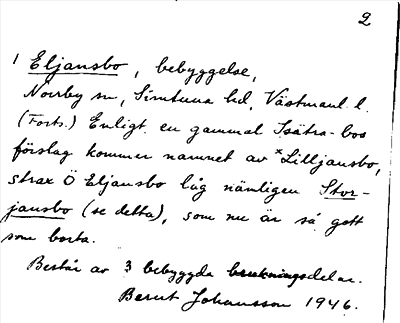 2
1 Eljansbo, bebyggelse,
Norrby sn, Simtuna hd, Västmanl. l.
(Forts.) Enligt en gammal Isätra-bos
förslag kommer namnet av *Lilljansbo,
strax Ö Eljansbo låg nämligen Stor-
jansbo (se detta), som nu är så gott
som borta.
Består av 3 bebyggda brukningsdelar.
Bernt Johansson 1946.